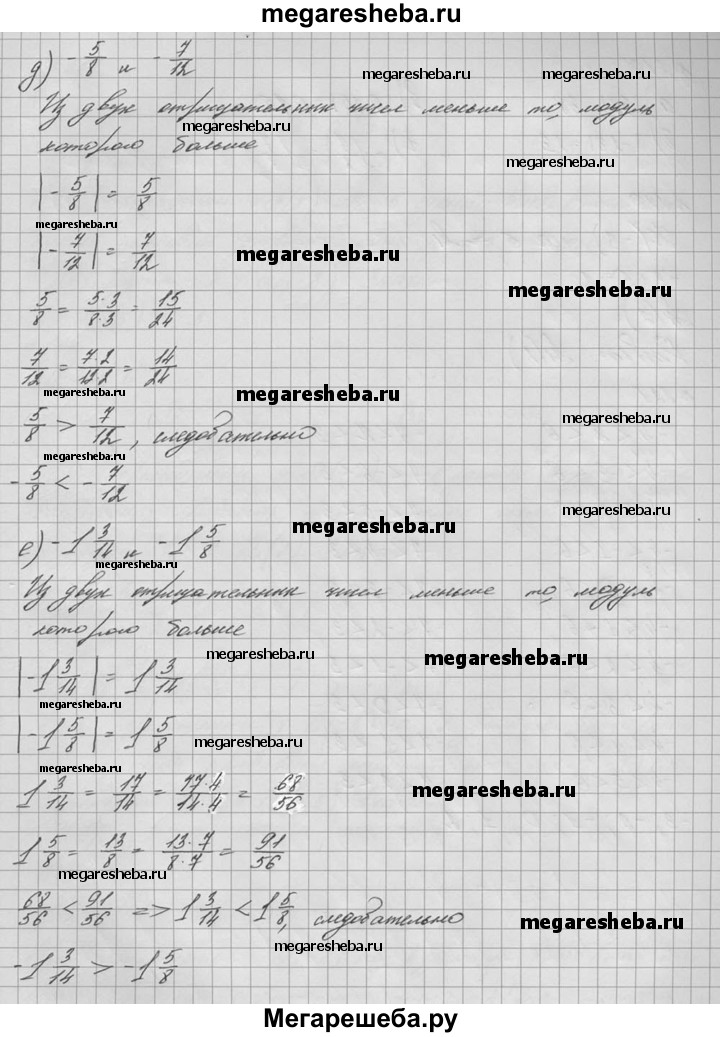 megaresheba.ru
д) -5/8 и -7/12
megaresheba.ru megaresheba.ru
Из двух отрицательных чисел меньше то, модуль
megaresheba.ru
которого больше
megaresheba.ru
|-5/8| = 5/8
megaresheba.ru
|-7/12| = 7/12
megaresheba.ru
megaresheba.ru
5/8 = 5·3/8·3 = 15/24
7/12 = 7·2/12·2 = 14/24
megaresheba.ru megaresheba.ru
5/8 > 7/12, следовательно
megaresheba.ru
megaresheba.ru
-5/8 < -7/12
megaresheba.ru
megaresheba.ru
е) -1 3/14 и -1 5/8
megaresheba.ru
megaresheba.ru
Из двух отрицательных чисел меньше то, модуль
которого больше
megaresheba.ru megaresheba.ru
|-1 3/14| = 1 3/14
megaresheba.ru
|-1 5/8| = 1 5/8
megaresheba.ru
megaresheba.ru
1 3/14 = 17/14 = 17·4/14·4 = 68/56
megaresheba.ru
1 5/8 = 13/8 = 13·7/8·7 = 91/56
megaresheba.ru
68/56 < 91/56 => 1 3/14 < 1 5/8, следовательно
megaresheba.ru
megaresheba.ru
-1 3/14 > -1 5/8
Мегарешеба.ру